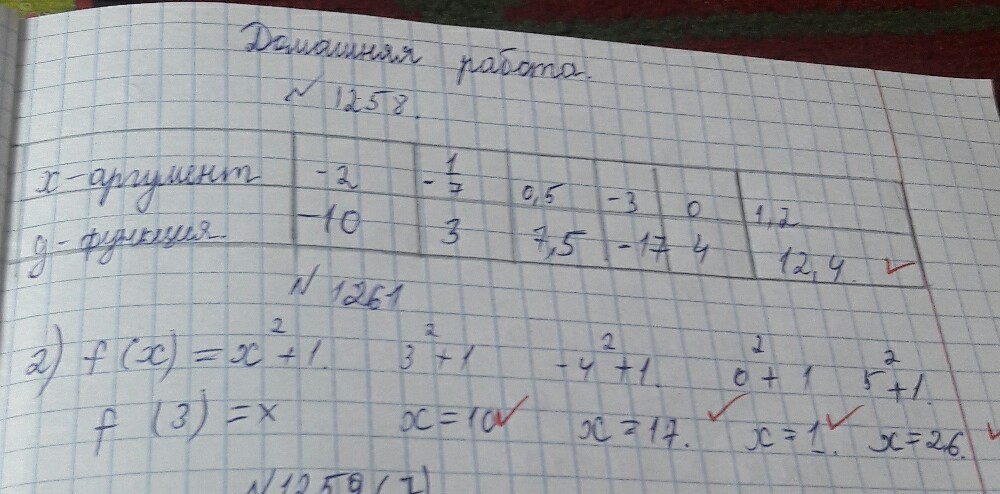 Домашняя работа.
№ 1258.
x-аргумент -2 -1/7 0,5 -3 0 1,2
y-функция -10 3 7,5 -17 4 12,4.
№ 1261
2) f(x) = x²+1. 3²+1 -4²+1. 0²+1 5²+1.
f (3) = x x=10 x=17. x=1. x=26.
№1259(7)